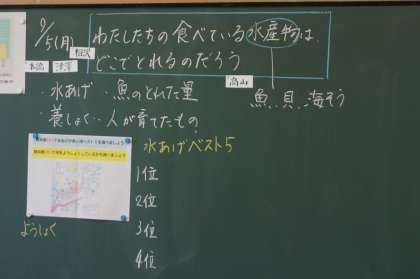 9/5(月)
わたしたちの食べている水産物は、
どこでとれるのだろう
高山
魚、貝、海そう
・水あげ・魚のとれた量
・養しょく・人が育てたもの
水あげベスト5
1位
2位
3位
4位
ようしょく